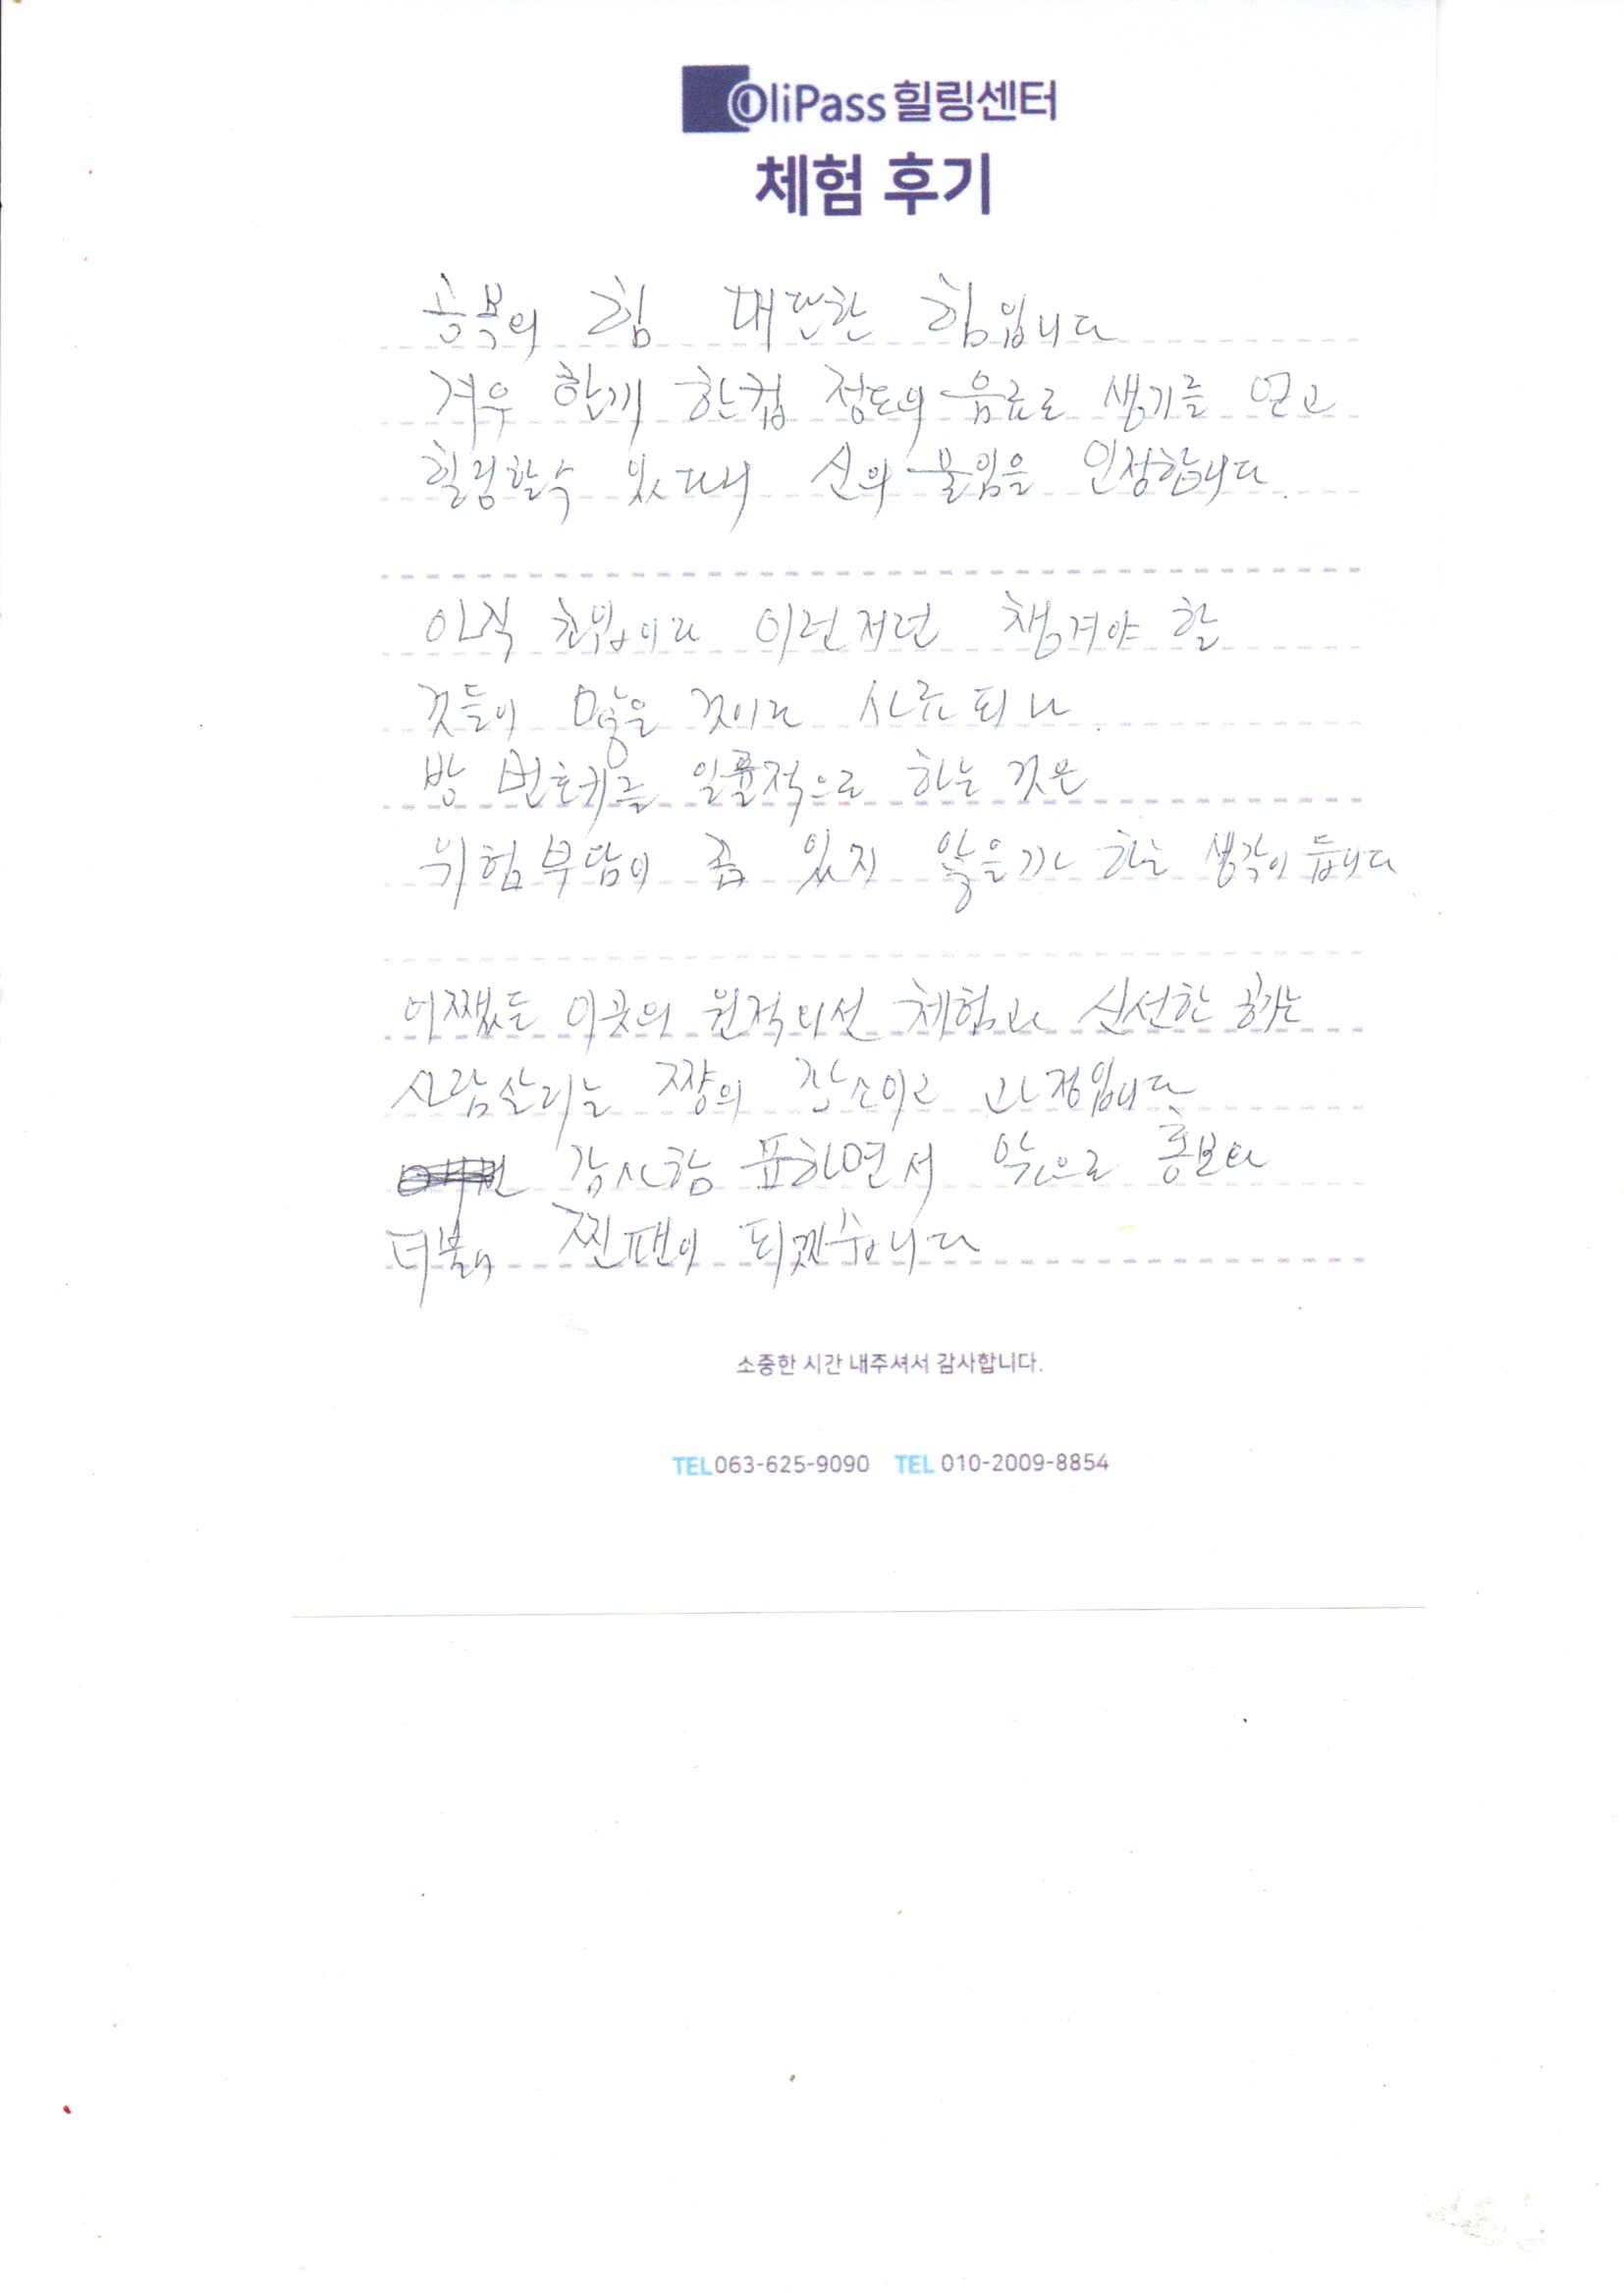 OliPass 힐링센터
체험 후기
공복의 힘 대단한 힘입니다
겨우 한끼 한컵 정도의 음료로 생기를 얻고
힐링할수 있다니 신의 붙임을 인정합니다.
아직 초입이라 이런저런 챙겨야 할
것들이 많을 것이라 사료되나
방 번호키를 일률적으로 하는 것은
위험부담이 좀 있지 않을까 하는 생각이 듭니다
어쨌든 이곳의 원적외선 체험과 신선한 공기는
사람살리는 짱의 장소이고 과정입니다
감사함 표하면서 앞으로 홍보와
더불어 찐팬이 되겠습니다
소중한 시간 내주셔서 감사합니다.
TEL 063-625-9090 TEL 010-2009-8854